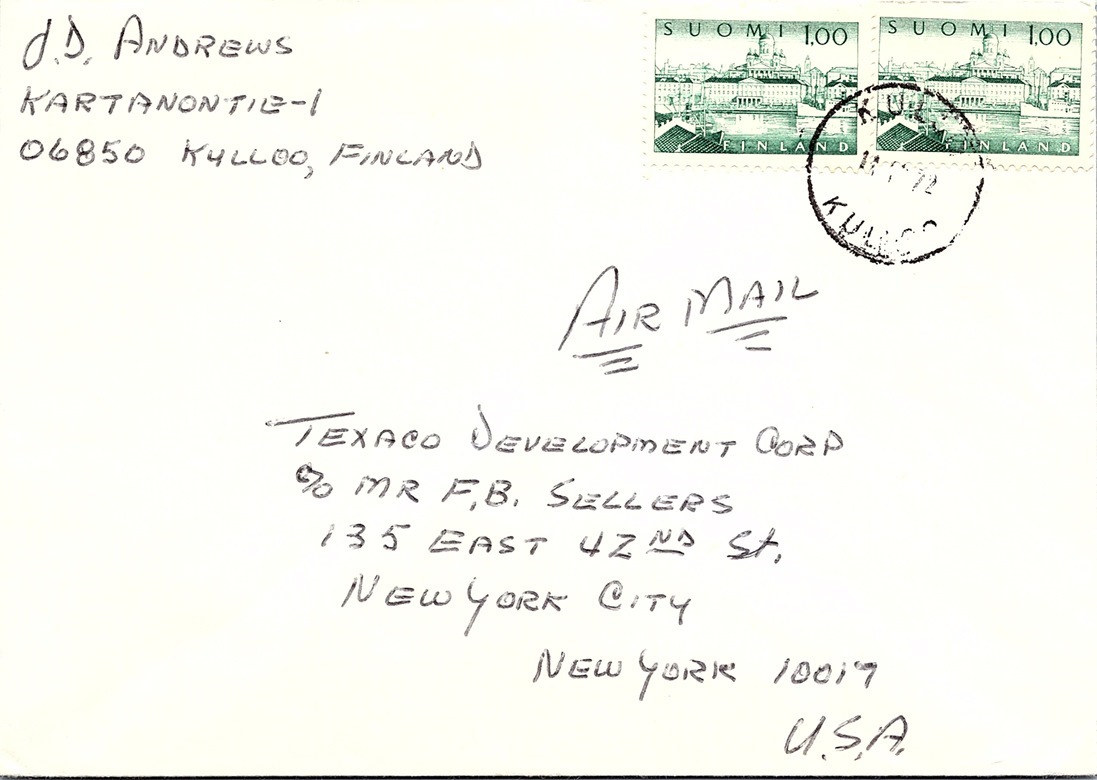 J.D. ANDREWS
KARTANONTIE-1
06850 KYLLOO, FINLAND
SUOMI 1,00
FINLAND
SUOMI 1,00
FINLAND
KULLOO
AIR MAIL
TEXACO DEVELOPMENT CORP
c/o MR F.B. SELLERS
135 EAST 42ND St.
NEW YORK CITY
NEW YORK 10017
U.S.A.